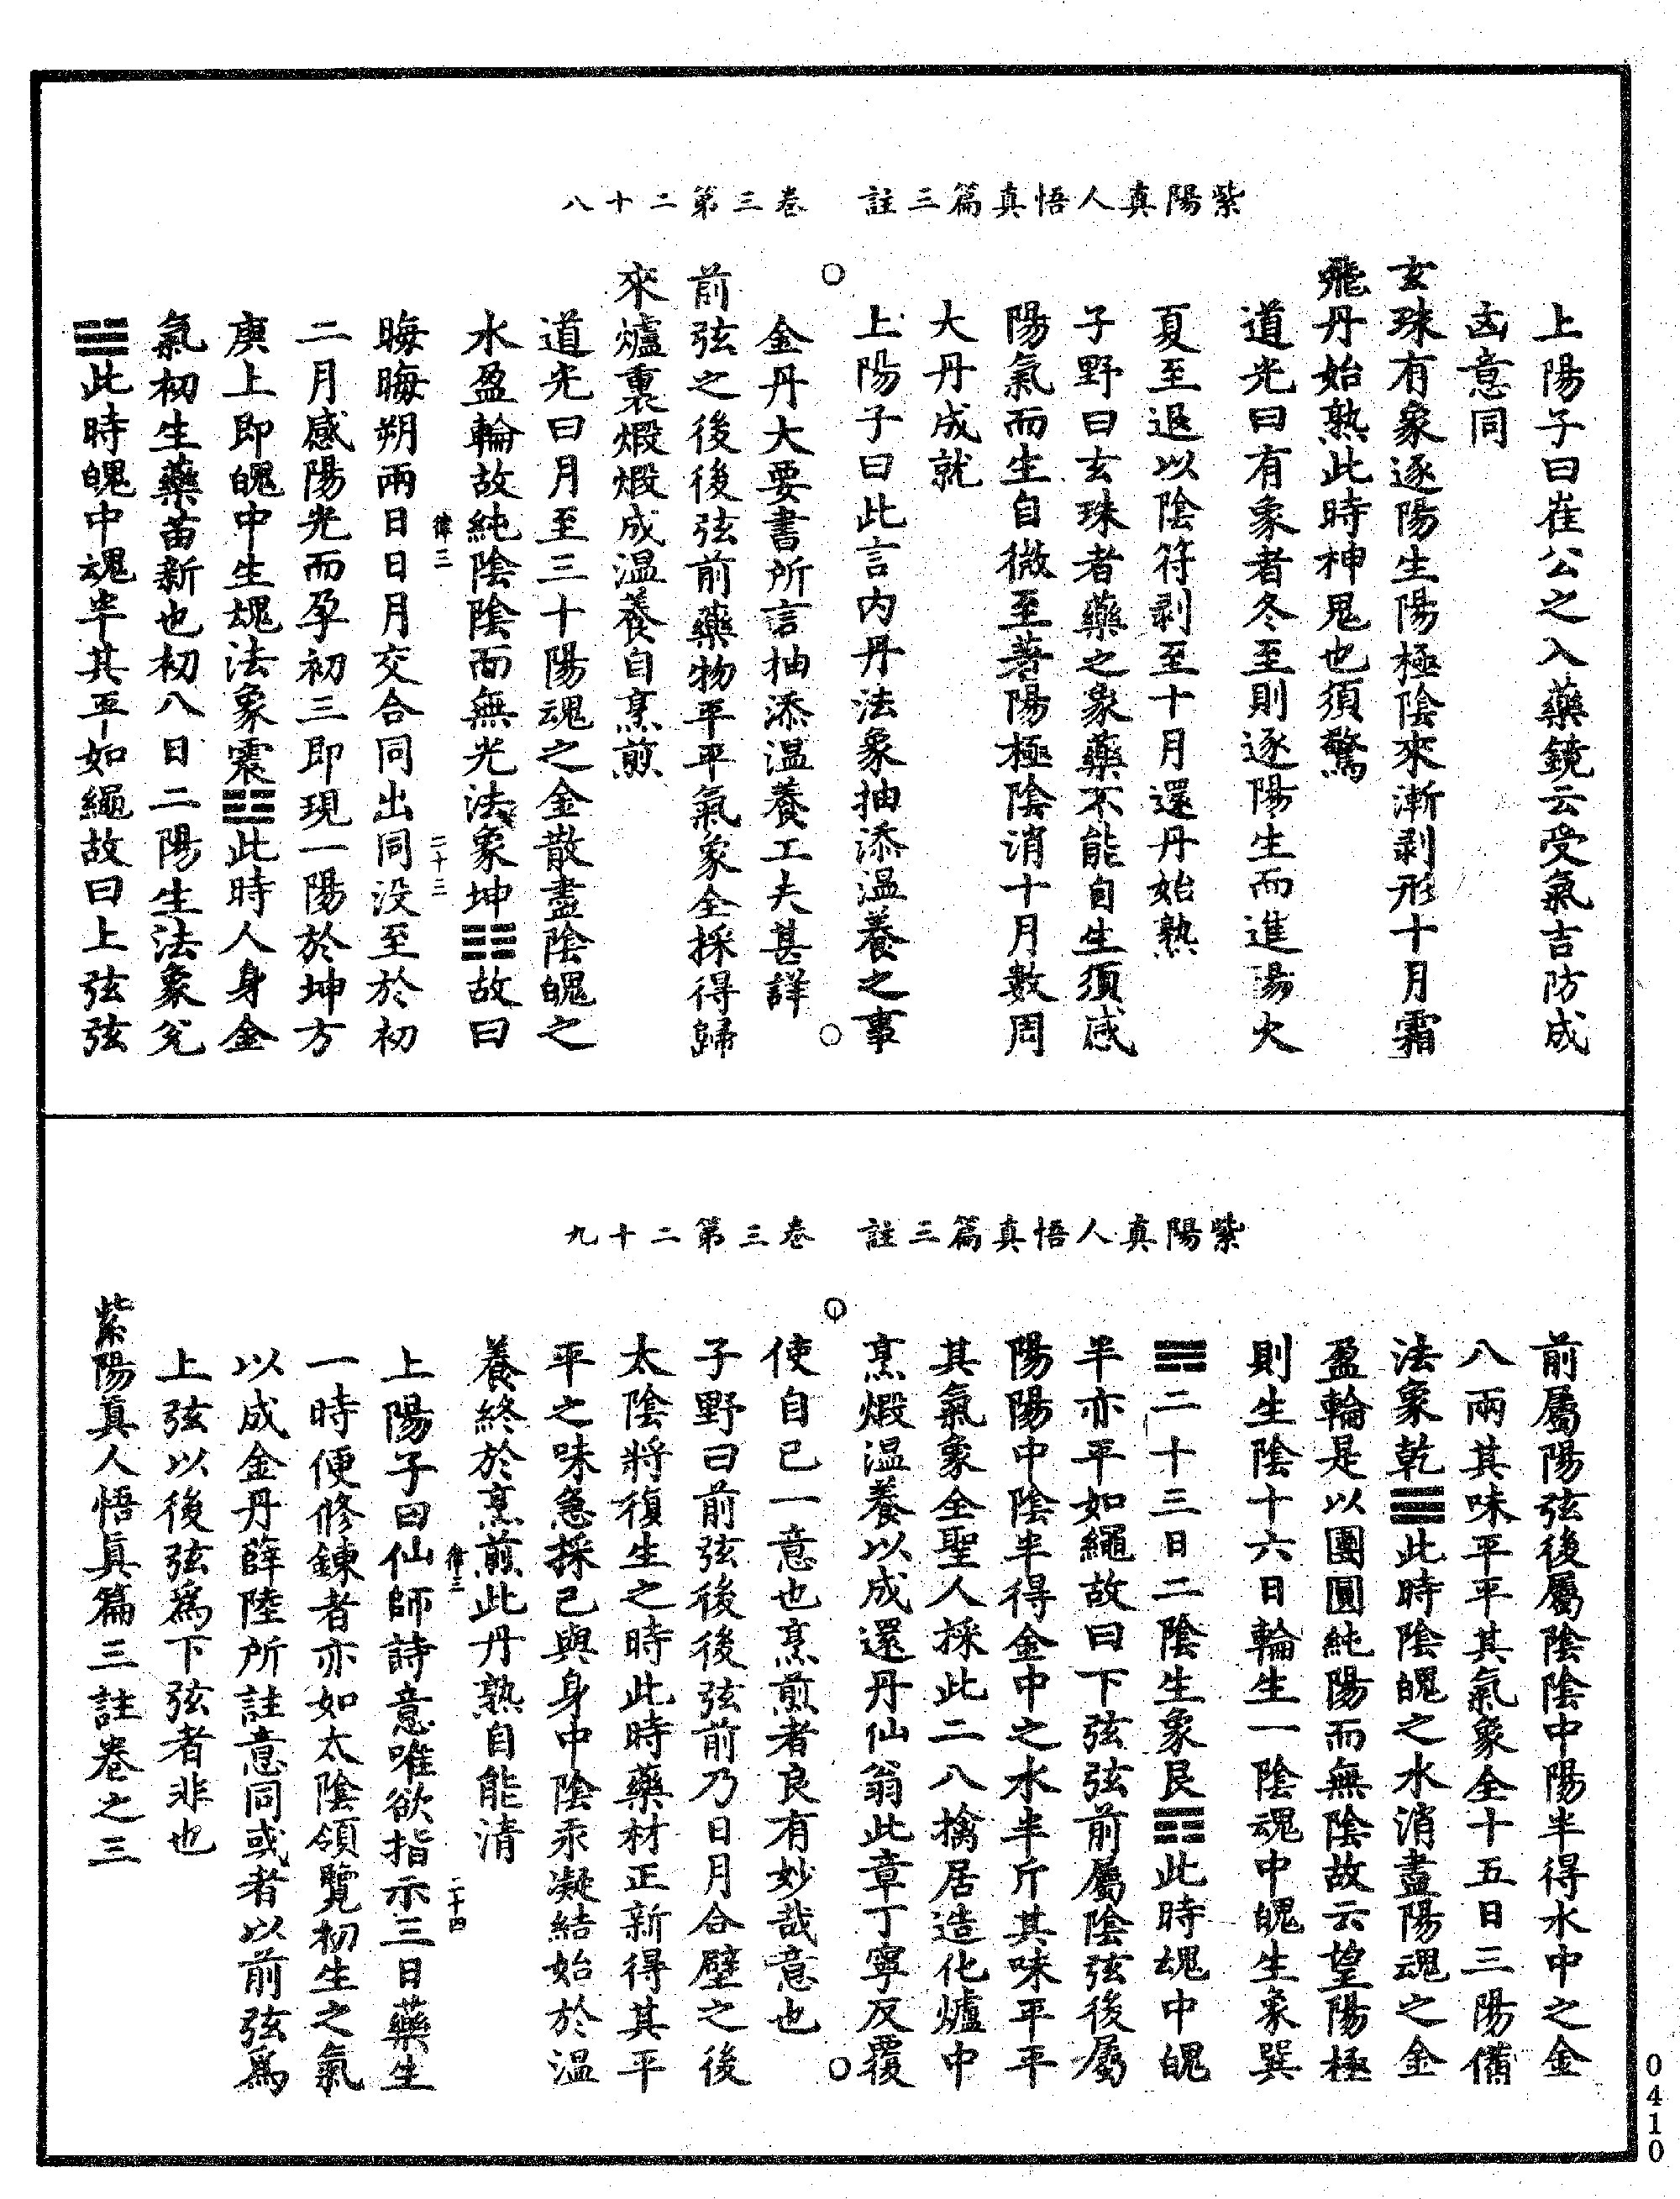 紫陽真人悟真篇三註　卷三第二十八
上陽子曰崔公之入藥鏡云受氣吉防成
凶意同
玄珠有象逐陽生陽極陰來漸剥形十月霜
飛丹始熟此時神鬼也須驚
道光曰有象者冬至則逐陽生而進陽火
夏至退以陰符剥至十月還丹始熟
子野曰玄珠者藥之象藥不能自生須感
陽氣而生自微至著陽極陰消十月數周
大丹成就
上陽子曰此言内丹法象抽添温養之事
金丹大要書所言抽添温養工夫甚詳
前弦之後後弦前藥物平平氣象全採得歸
來爐裏煅煅成温養自烹煎
道光曰月至三十陽魂之金散盡陰魄之
水盈輪故純陰陰而無光法象坤☷故曰
晦晦朔兩日日月交合同出同没至於初
律三
二十三
二月感陽光而孕初三即現一陽於坤方
庚上即魄中生魂法象震☳此時人身金
氣初生藥苗新也初八日二陽生法象兊
☱此時魄中魂半其平如繩故曰上弦弦
紫陽真人悟真篇三註　卷三第二十九
前屬陽弦後屬陰陰中陽半得水中之金
八兩其味平平其氣象全十五日三陽備
法象乾☰此時陰魄之水消盡陽魂之金
盈輪是以團圓純陽而無陰故云望陽極
則生陰十六日輪生一陰魂中魄生象巽
☴二十三日二陰生象艮☶此時魂中魄
半亦平如繩故曰下弦弦前屬陰弦後屬
陽陽中陰半得金中之水半斤其味平平
其氣象全聖人採此二八擒居造化爐中
烹煅温養以成還丹仙翁此章丁寧反覆
使自已一意也烹煎者良有妙哉意也
子野曰前弦後後弦前乃日月合壁之後
太陰將復生之時此時藥材正新得其平
平之味急採已與身中陰汞凝結始於温
養終於烹煎此丹熟自能清
律三
二十四
上陽子曰仙師詩意唯欲指示三日藥生
一時便修鍊者亦如太陰領覽初生之氣
以成金丹薛陸所註意同或者以前弦為
上弦以後弦為下弦者非也
紫陽真人悟真篇三註卷之三
0410